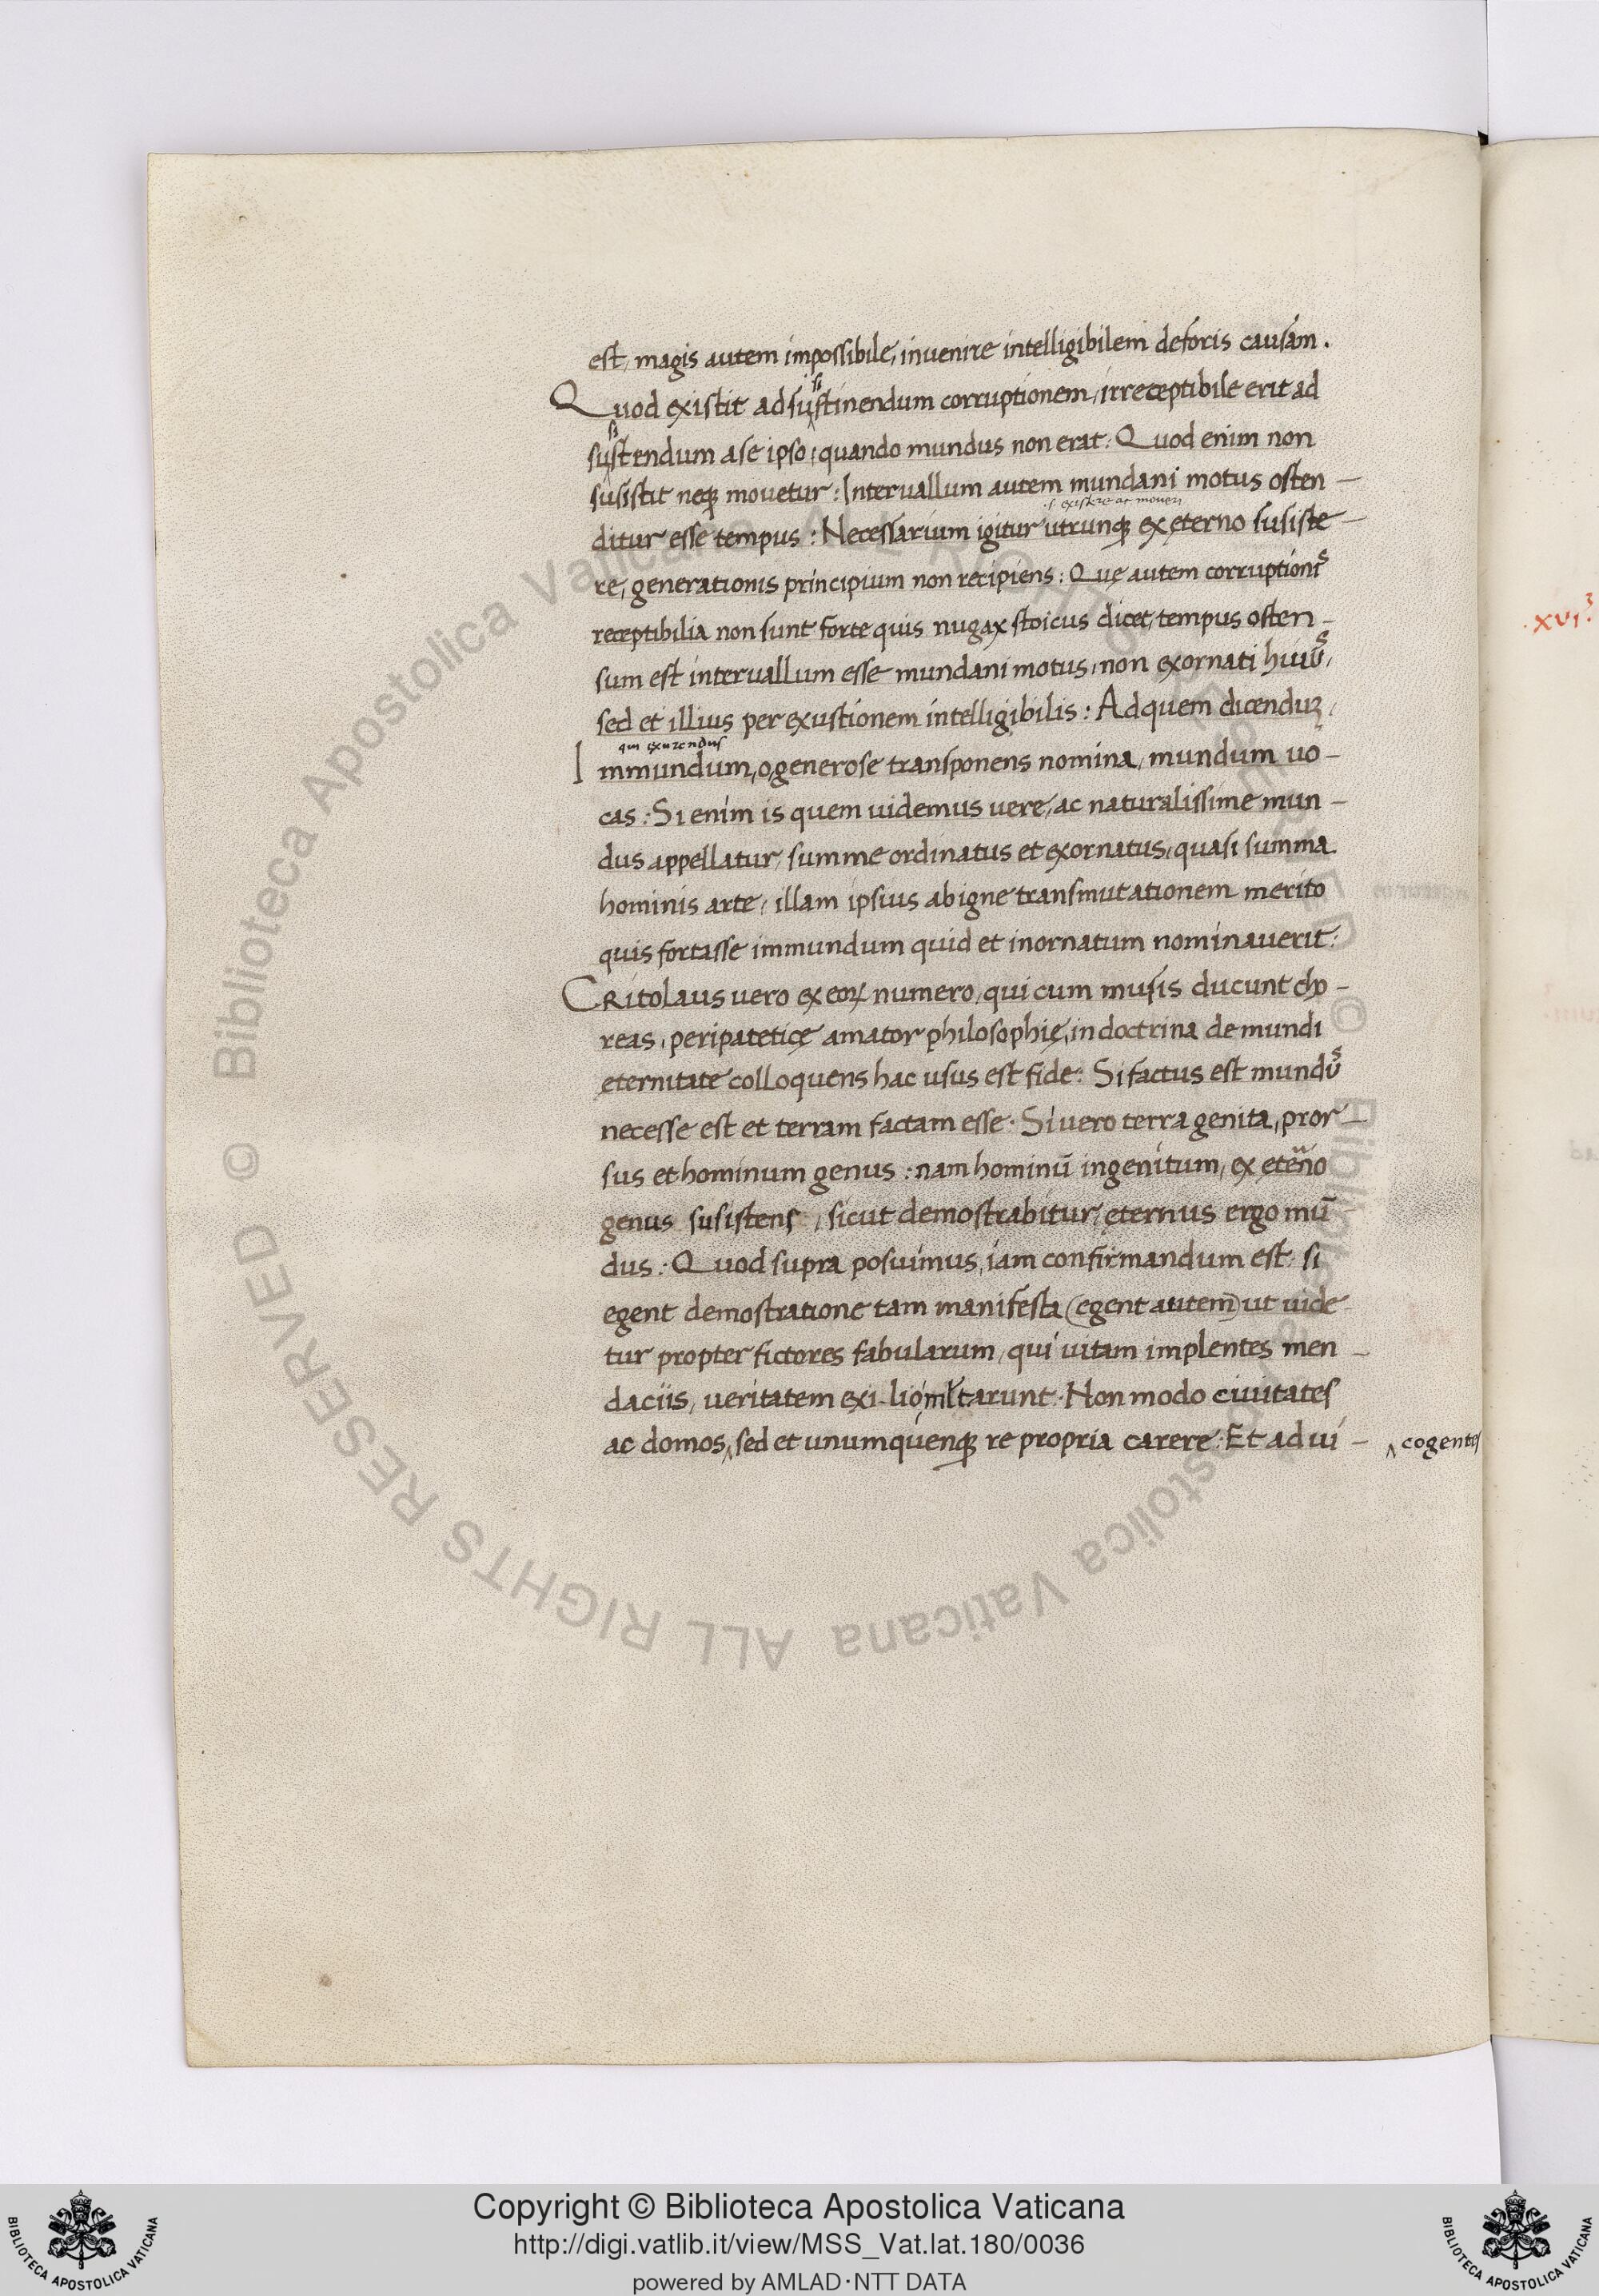 est, magis autem impossibile, invenire intelligibilem deforis causam.
Quod existit ad susistinendum corruptionem, irreceptibile erit ad
susistendum a se ipso, quando mundus non erat: Quod enim non
susistit neq; movetur: Intervallum autem mundani motus osten-
.s. existere ac moveri
ditur esse tempus: Necessarium igitur utrunq; ex ęterno susiste-
re, generationis principium non recipiens: Quę autem corruptionis
receptibilia non sunt forte quis nugax stoicus dicet, tempus osten-
sum est intervallum esse mundani motus, non exornati huius,
sed et illius per exustionem intelligibilis: Ad quem dicenduʒ,
qui exurendus
Immundum, o, generose transponens nomina, mundum uo-
cas: Si enim is quem uidemus vere, ac naturalissime mun-
dus appellatur, summe ordinatus et exornatus, quasi summa
hominis arte, illam ipsius ab igne transmutationem merito
quis fortasse immundum quid et inornatum nominaverit:
Critolaus vero ex eoꝝ numero, qui cum musis ducunt cho-
reas, peripateticę amator philosophię, in doctrina de mundi
ęternitate colloquens hac usus est fide: Si factus est mundus
necesse est et terram factam esse. Si vero terra genita, pror-
sus et hominum genus: nam hominū ingenitum, ex ęterno
genus susistens, sicut demostrabitur, ęternus ergo mū
dus: Quod supra posuimus, iam confirmandum est: si
egent demostratione tam manifesta (egent autem) ut uide
tur propter fictores fabularum, qui vitam implentes men-
daciis, veritatem exi-lio tarunt. Non modo civitates
ac domos, sed et unumquenq; re propria carere: Et ad ui-
cogentes
.xvi.
Copyright © Biblioteca Apostolica Vaticana
http://digi.vatlib.it/view/MSS_Vat.lat.180/0036
powered by AMLAD·NTT DATA
BIBLIOTECA APOSTOLICA VATICANA
BIBLIOTECA APOSTOLICA VATICANA
© Biblioteca Apostolica Vaticana ALL RIGHTS RESERVED © Biblioteca Apostolica Vaticana ALL RIGHTS RESERVED